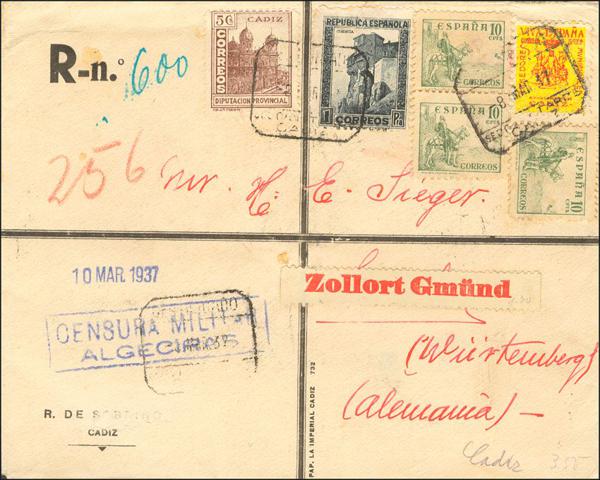 5C CADIZ
CORREOS
DIPUTACION PROVINCIAL
REPUBLICA ESPAÑOLA
CUENCA
1 CORREOS Pta
ESPAÑA 10 CTS
CORREOS
ESPAÑA 10 CTS
CORREOS
ESPAÑA 10 CTS
CORREOS
R-n.º 600
CADIZ
8 MAR 37
256 Mr. H. E. Sieger.
10 MAR. 1937
Zollort Gmünd
CENSURA MILITAR
ALGECIRAS
(Württemberg)
(Alemania) —
R. DE
CADIZ
PAP. LA IMPERIAL CADIZ 732
Cadiz 355